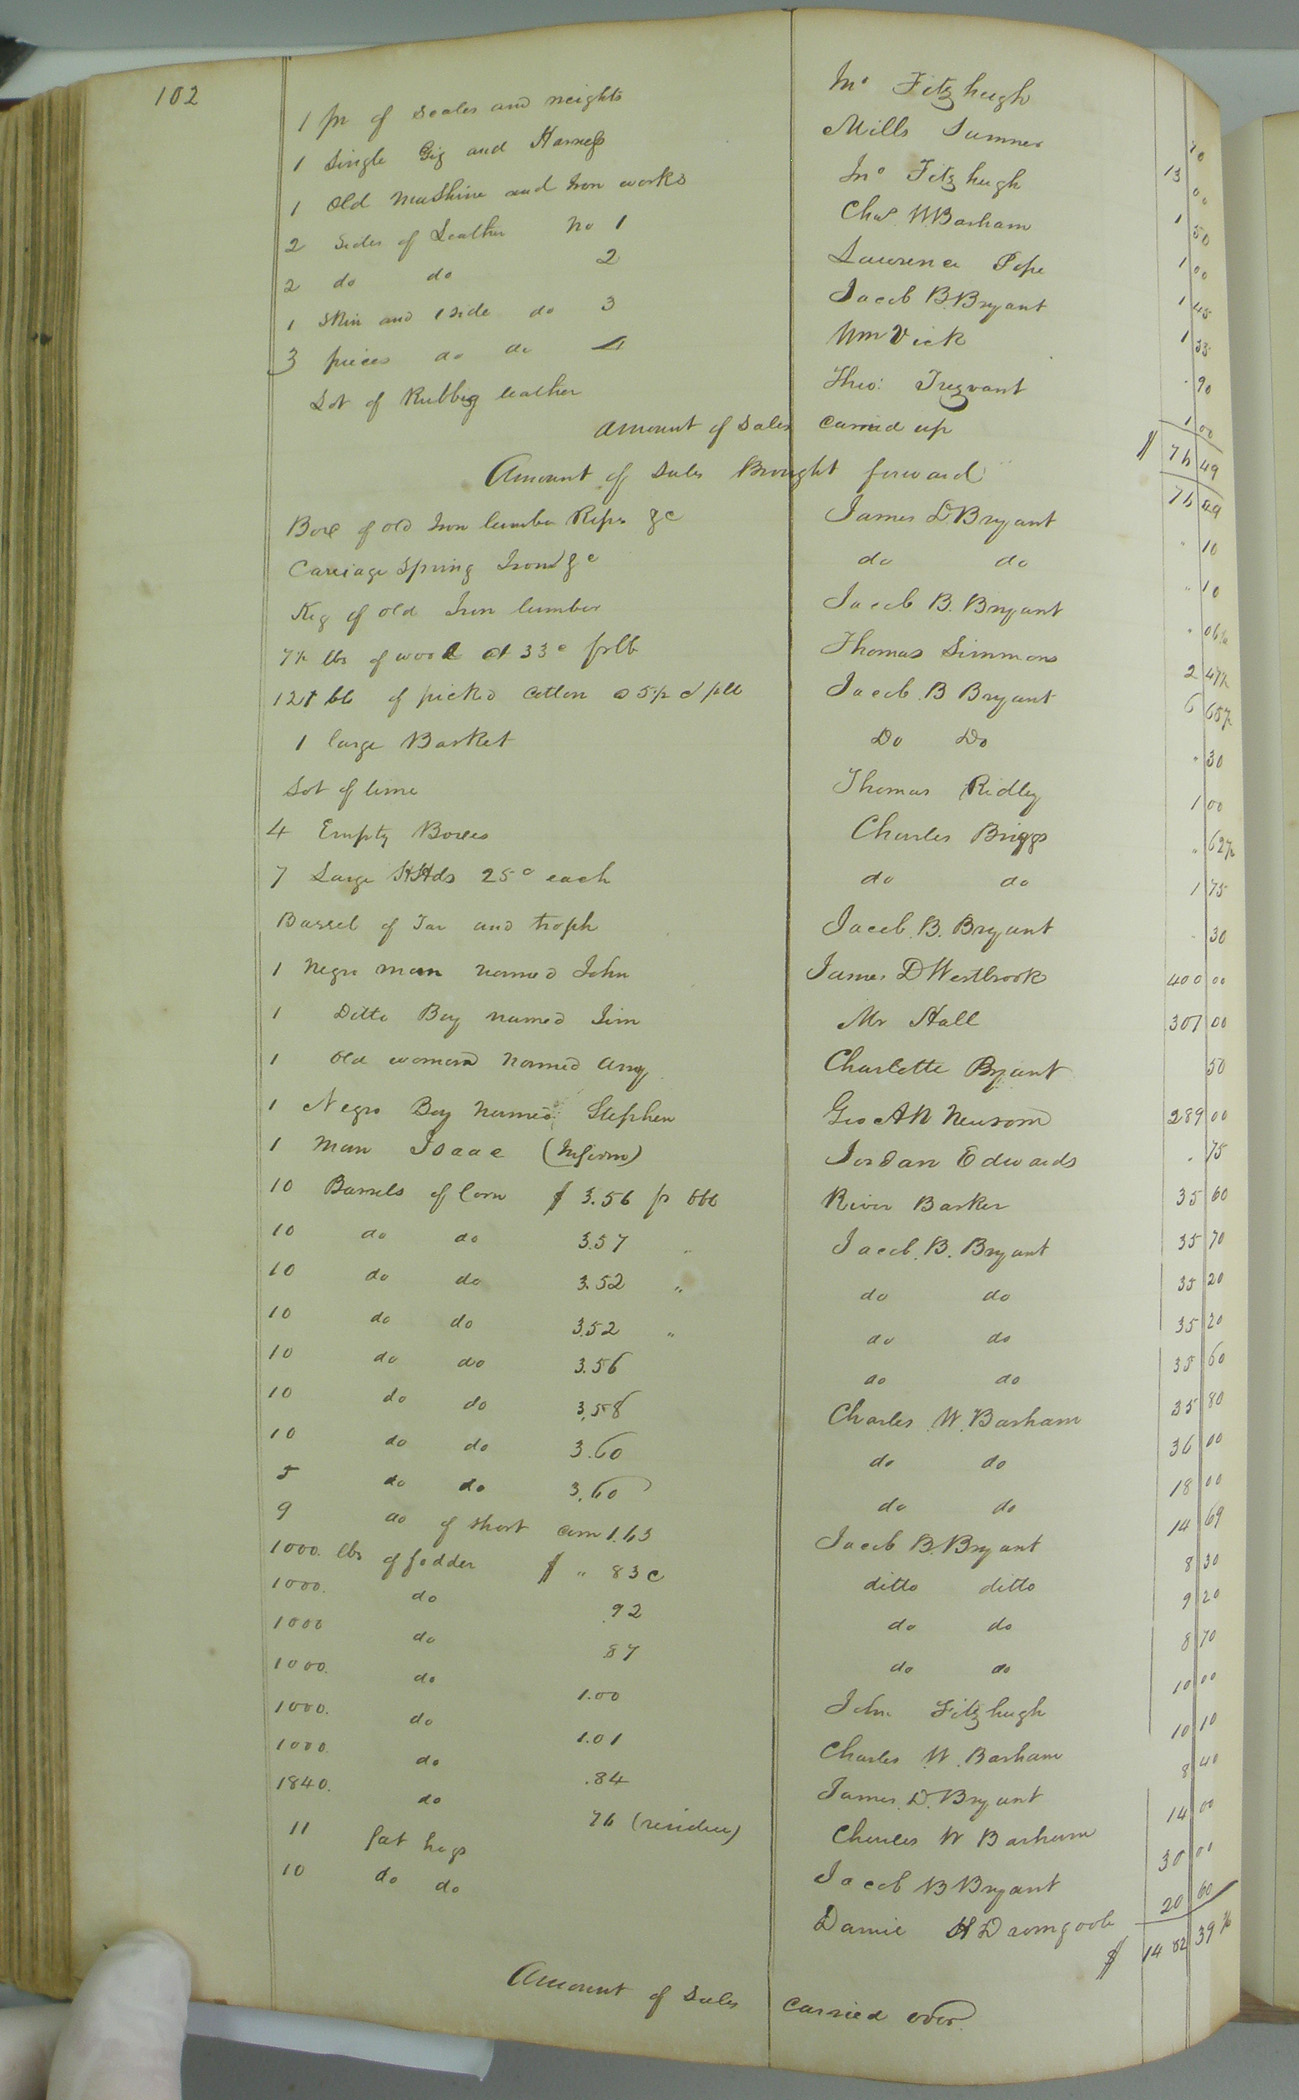 102
1 pr of Scales and weights Jno Fitzhugh 70
1 Single Gig and Harness Mills Sumner 13 00
1 Old Mashine and Iron works Jno Fitzhugh 1 50
2 Sides of Leather No 1 Chas W Barham 1 00
2 do do 2 Lawrence Pope 1 45
1 Skin and 1 side do 3 Jacob B. Bryant 1 33
3 pieces do do 4 Wm Vick " 90
Lot of Rubbig leather Theo: Trezvant 1 00
Amount of Sales Carried up $ 76 49
Amount of Sales Brought forward 76 49
Boxe of old Iron lumber &c James D. Bryant " 10
Carriage Spring Irons &c do do " 10
Keg of old Iron lumber Jacob B. Bryant " 06 1/4
7 1/2 lbs of wool at 33c pr lb Thomas Simmons 2 47 1/2
121 lb of picked Cotton @ 5 1/2 c p lb Jacob B Bryant 6 65 1/2
1 large Basket Do Do " 30
Lot of lime Thomas Ridley 1 00
4 Empty Boxes Charles Briggs " 62 1/2
7 Large HHds 25c each do do 1 75
Barrel of Tar and Jacob B. Bryant " 30
1 Negro man named John James D Westbrook 400 00
1 Ditto Boy named Jim Mr Hall 307 00
1 Old woman named Amy Charlotte Bryant 50
1 Negro Boy named Stephen Geo A W Newsom 289 00
1 man Isaac (Infirm) Jordan Edwards " 75
10 Barrels of Corn $ 3.56 pr bbl River Barker 35 60
10 do do 3.57 " Jacob. B. Bryant 35 70
10 do do 3.52 " do do 35 20
10 do do 3.52 " do do 35 20
10 do do 3.56 do do 35 60
10 do do 3.58 Charles W. Barham 35 80
10 do do 3.60 do do 36 00
5 do do 3.60 do do 18 00
9 do of short corn 1.63 Jacob B. Bryant 14 69
1000. lbs of fodder $ " 83 c ditto ditto 8 30
1000. do .92 do do 9 20
1000 do .87 do do 8 70
1000. do 1.00 John Fitzhugh 10 00
1000. do 1.01 Charles W. Barham 10 10
1000. do .84 James D. Bryant 8 40
1840. do 76 (residue) Charles W Barham 14 00
11 fat hogs Jacob B Bryant 30 00
10 do do H Dromgoole 20 60
$ 1482 39
Amount of Sales carried over